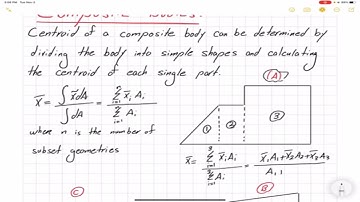 5:06 PM Tue Nov 3
Composite Bodies:
Centroid of a composite body can be determined by
dividing the body into simple shapes and calculating
the centroid of each single part.
(A)
x̄ = ∫x̄dA / ∫dA = Σ(i=1 to n) x̄ᵢAᵢ / Σ(i=1 to n) Aᵢ
① ② ③
where n is the number of
subset geometries
x̄ = Σ(i=1 to 3) x̄ᵢAᵢ / Σ(i=1 to 3) Aᵢ = x̄₁A₁+x̄₂A₂+x̄₃A₃ / A₁+
(C)
(B)